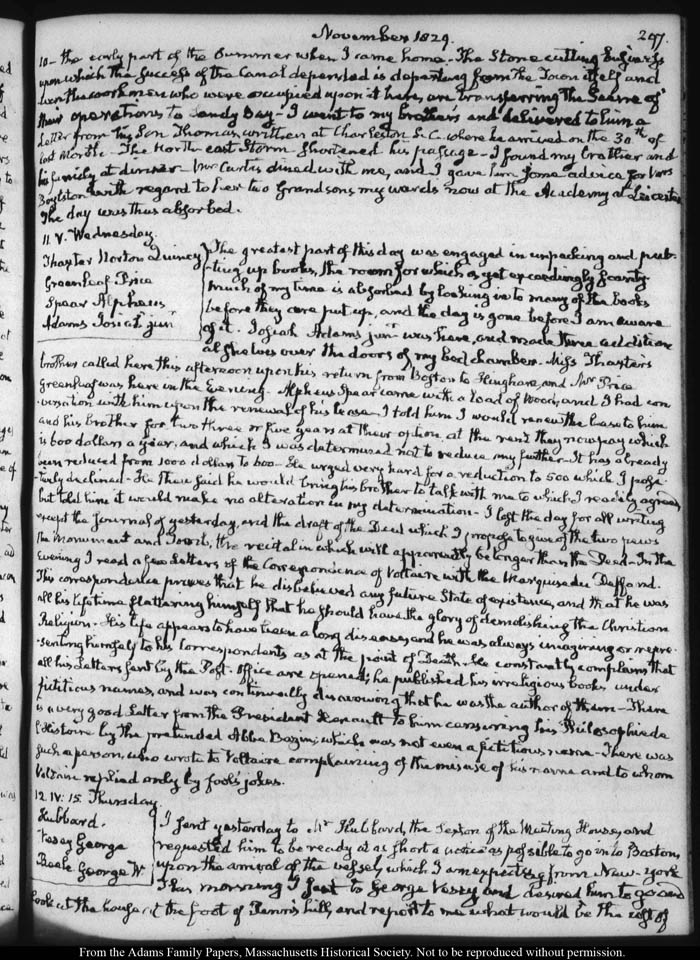 November 1829.
297.
10 – the early part of the Summer when I came home. The Stone cutting business
upon which the success of the Canal depended is departing from the Town itself and
even the workmen who were occupied upon it here, are transferring the Scene of
their operations to Sandy Bay – I went to my brother's and delivered to him a
Letter from his Son Thomas, written at Charleston S.C. where he arrived on the 30th of
last Month. The North east Storm shortened his passage – I found my brother and
his family at dinner Mr Curtis dined with me, and I gave him some advice for Mrs
Boylston with regard to her two Grandsons, my wards now at the Academy at Leicester
The day was thus absorbed.
11. V. Wednesday.
Thaxter Norton Quincy
Greenleaf Price
Spear Alpheus
Adams Josiah junr
The greatest part of this day was engaged in unpacking and put-
-ting up books, the room for which is yet exceedingly scanty
Much of my time is absorbed by looking into many of the books
before they are put up, and the day is gone before I am aware
of it. Josiah Adams junr was here, and made three addition-
al shelves over the doors of my bed chamber. Miss Thaxter's
brother called here this afternoon upon his return from Boston to Hingham, and Mr Price
Greenleaf was here in the Evening. Alpheus Spear came with a load of Wood, and I had con
versation with him upon the renewal of his lease. I told him I would renew the lease to him
and his brother for two three or five years at their option, at the rent they now pay which
is 600 dollars a year, and which I was determined not to reduce any further. It has already
been reduced from 1000 dollars to 600 – He urged very hard for a reduction to 500 which I posi-
-tively declined – He then said he would bring his brother to talk with me to which I readily agreed,
but told him it would make no alteration in my determination – I lost the day for all writing
except the Journal of yesterday, and the draft of the Deed which I propose to give of the two pews
the Monument and Tomb, the recital in which will apparently be longer than the Deed – In the
Evening I read a few Letters of the Correspondence of Voltaire with the Marquise du Deffand.
This correspondence proves that he disbelieved any future State of existence, and that he was
all his life time flattering himself that he should have the glory of demolishing the Christian
Religion. His life appears to have been a long disease, and he was always imagining or repre-
-senting himself to his Correspondents as at the point of Death. He constantly complains that
all his Letters sent by the Post-office are opened; he published his irreligious books under
fictitious names, and was continually disavowing that he was the author of them – There
is a very good Letter from the President Henault to him censuring his Philosophie de
l'Histoire by the pretended Abbé Bazin; which was not even a fictitious name – There was
such a person, who wrote to Voltaire complaining of the misuse of his name and to whom
Voltaire replied only by fool's jokes.
12. IV: 15. Thursday.
Hubbard.
Veasey George
Beale George W.
I sent yesterday to Mr Hubbard, the Sexton of the Meeting House, and
requested him to be ready at as short a notice as possible to go in to Boston,
upon the arrival of the vessel, which I am expecting from New-York
This morning I sent to George Veasey and desired him to go and
look at the house at the foot of Penn's hill, and report to me what would be the cost of
From the Adams Family Papers, Massachusetts Historical Society. Not to be reproduced without permission.